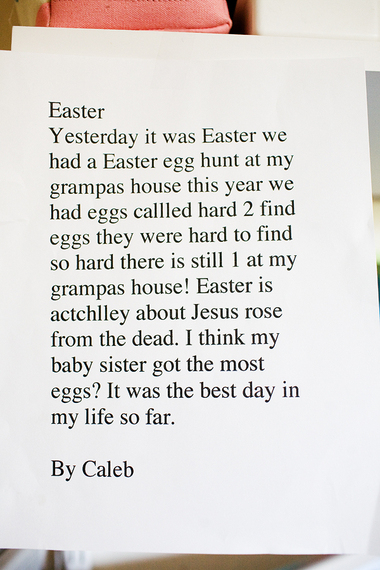 Easter
Yesterday it was Easter we
had a Easter egg hunt at my
grampas house this year we
had eggs callled hard 2 find
eggs they were hard to find
so hard there is still 1 at my
grampas house! Easter is
actchlley about Jesus rose
from the dead. I think my
baby sister got the most
eggs? It was the best day in
my life so far.
By Caleb